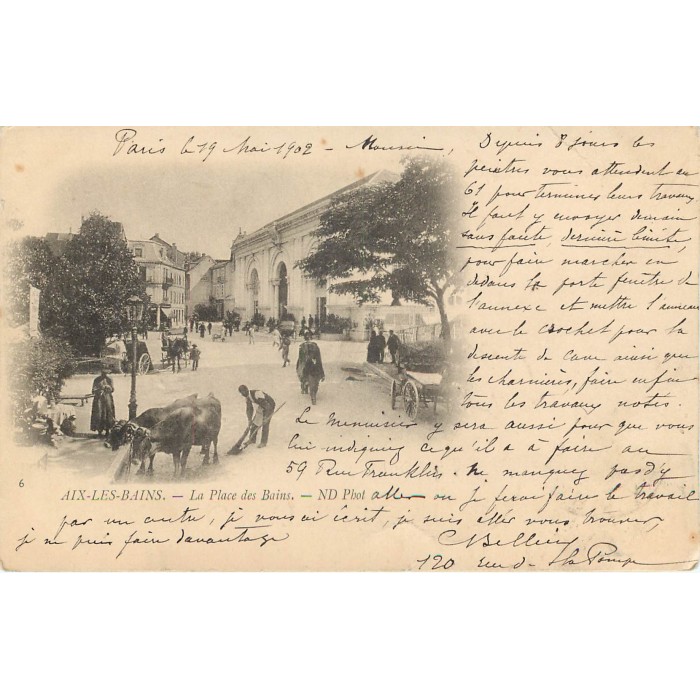 Paris le 19 Mai 1902 - Monsieur,
Depuis 8 jours les
peintres vous attendent au
61 pour terminer leurs travaux
Il faut y envoyer demain
sans faute, dernière limite,
pour faire marcher en
dedans la porte fenêtre de
l'annexe et mettre l'anneau
avec le crochet pour la
descente de cave ainsi que
les charnières, faire enfin
tous les travaux notés.
Le Menuisier y sera aussi pour que vous
lui indiquiez ce qu'il a à faire au
59 Rue Franklin. Ne manquez pas d'y
aller ou je ferai faire le travail
par un autre, je vous ai écrit, je suis allé vous trouver,
je ne puis faire davantage
120 rue de la Pompe
6
AIX-LES-BAINS. — La Place des Bains. — ND Phot